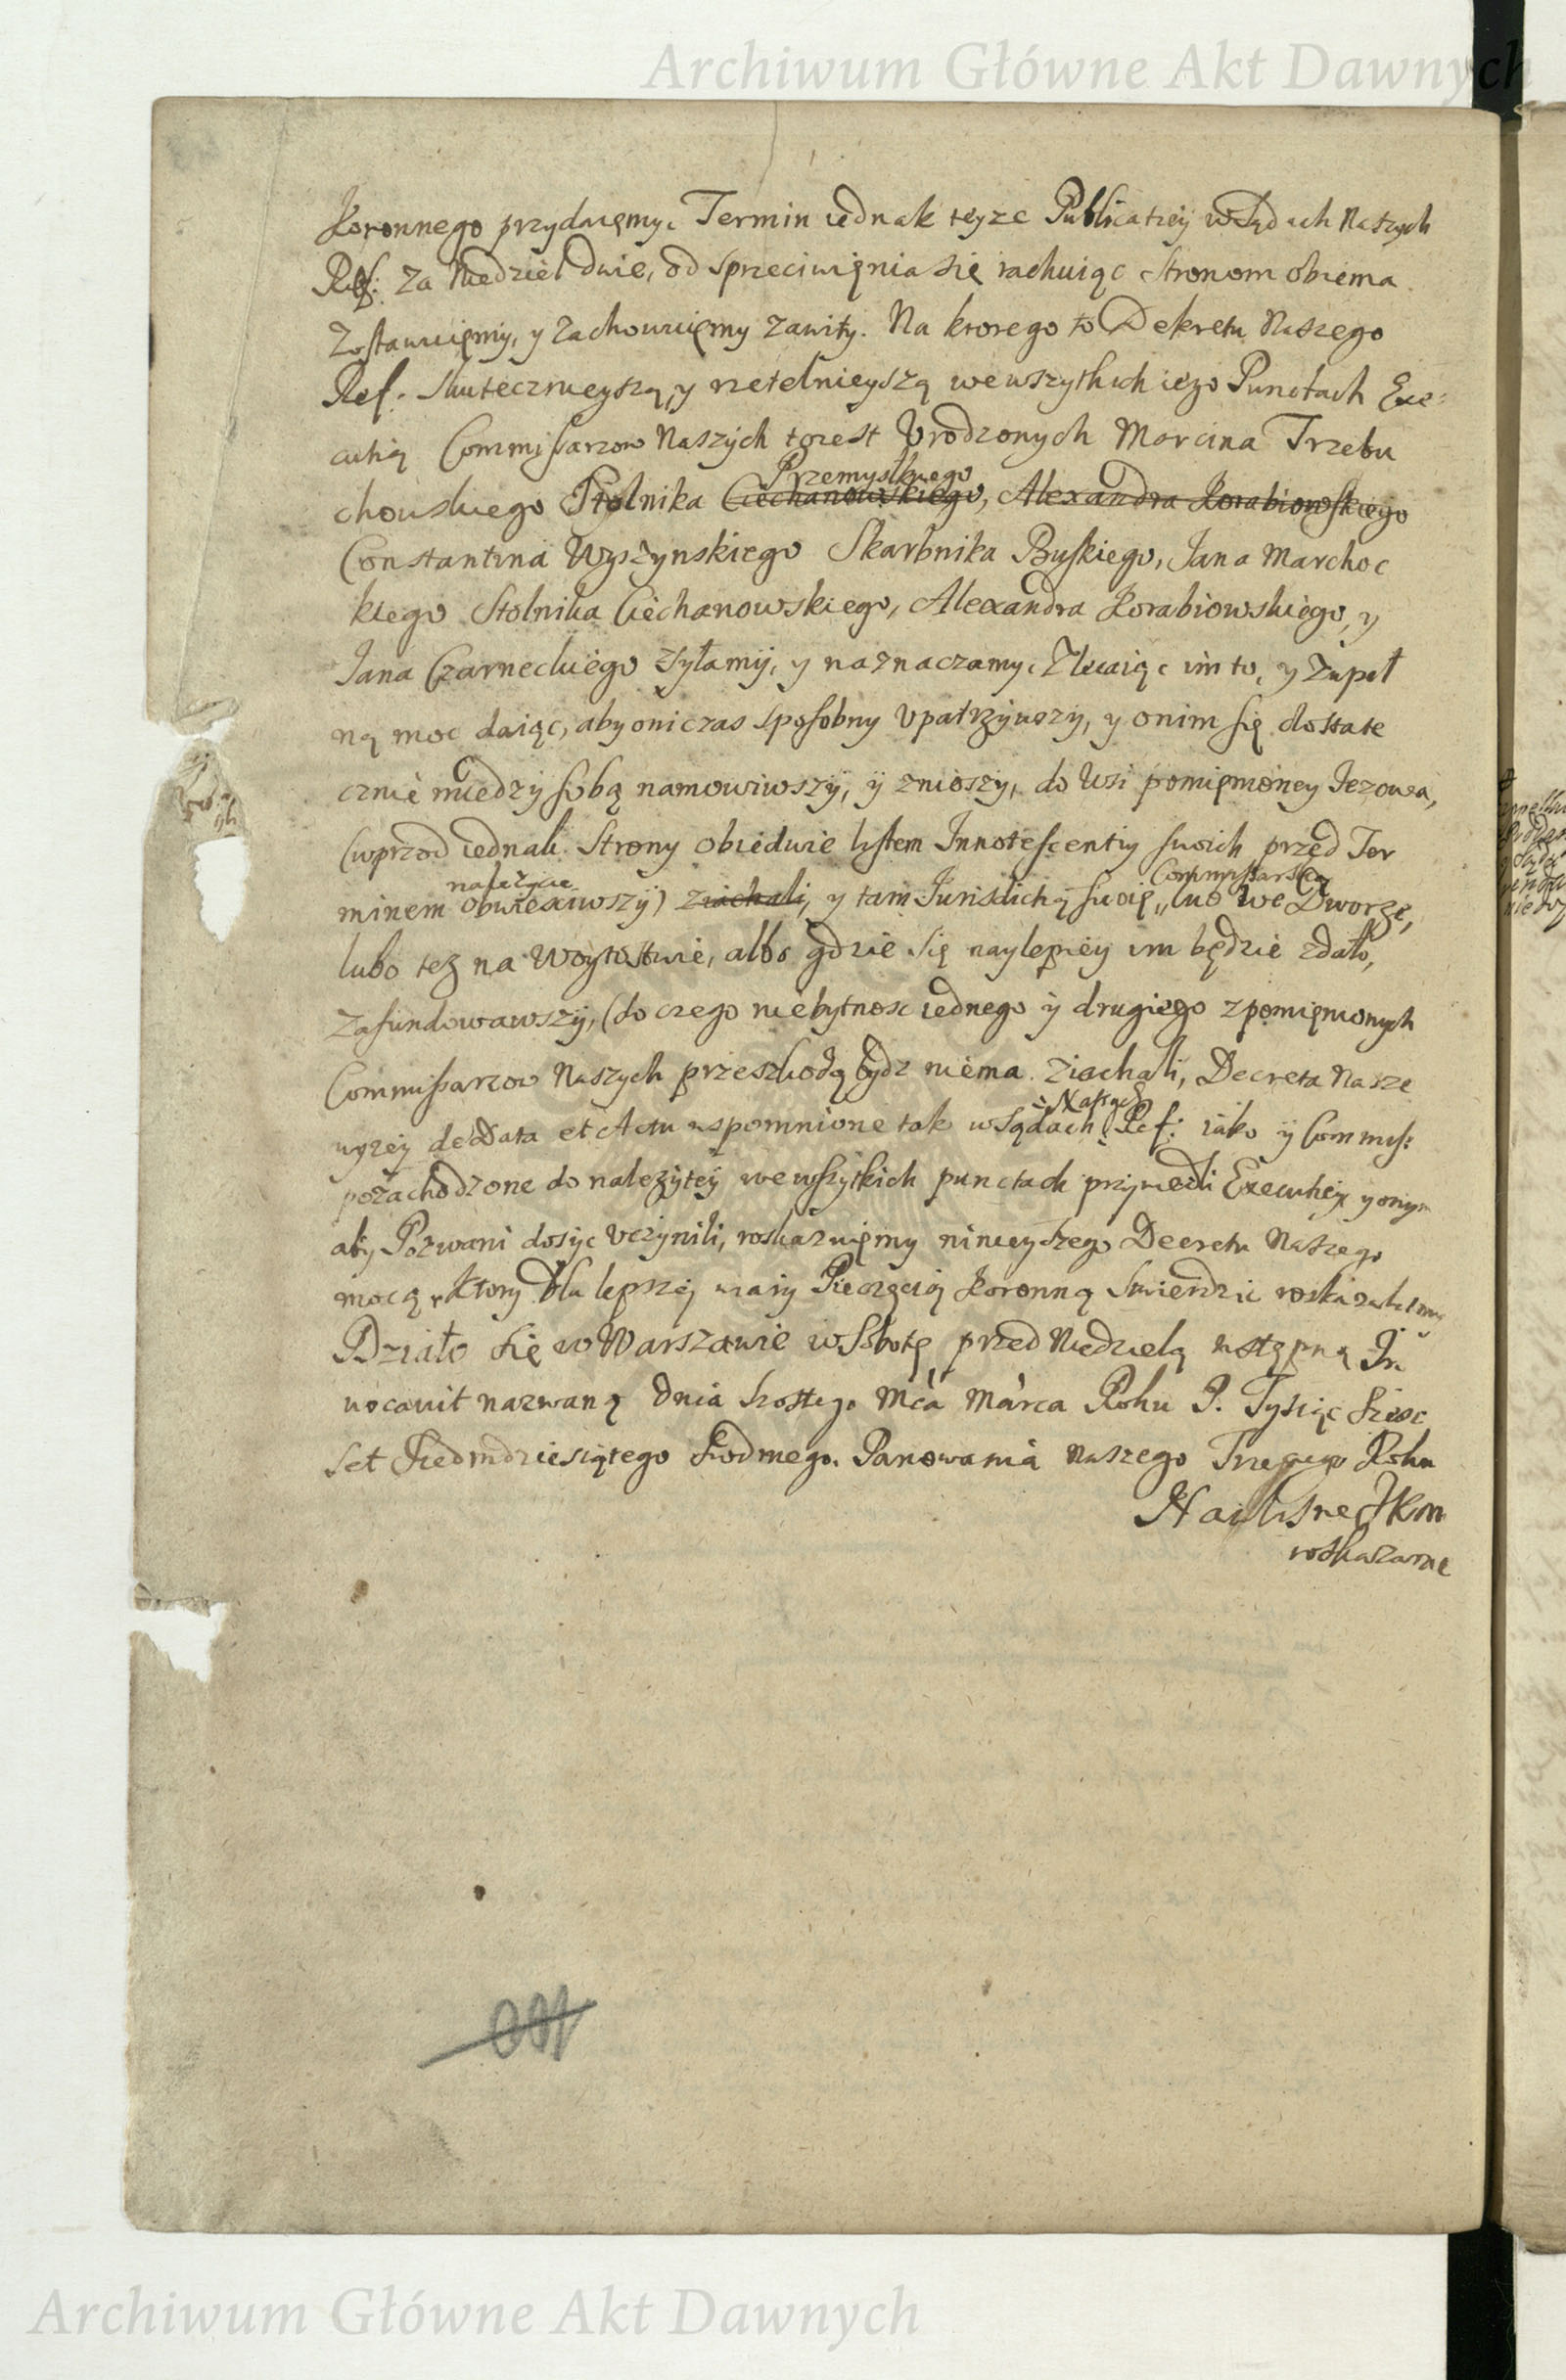 Archiwum Główne Akt Dawnych
Koronnego przydaięmy. Termin iednak teyze Publicatiey w Sądach Naszych
Ref: Za Niedziel dwie, od sprzeciwięnia się rachuiąc Stronom obiema
Zostawuięmy, y Zachowuięmy zawity. Na ktorego to Dekretu Naszego
Ref: Skutecznieyszą, y rzetelnieyszą we wszytkich iego Punctach Exe:
cutią Commissarzow Naszych to iest Vrodzonych Marcina Trzebu
Przemyslkiego
chowskiego Stolnika Ciechanowskiego, Alexandra Korabiowskiego
Constantina Wyszynskiego Skarbnika Buskiego, Jana Marchoc
kiego Stolnika Ciechanowskiego, Alexandra Korabiowskiego, y
Jana Czarneckiego Zsyłamy, y naznaczamy. Zlecaiąc im to, y Zupeł
ną moc daiąc, aby oni czas sposobny Vpatrzywszy, y onim się dostate
cznie między sobą namowiwszy, y zniosszy, do Wsi pomięnioney Jezowa,
(wprzod iednak Strony obiedwie listem Innotescentiy swoich przed Ter
nalezycie Commissarską
minem obwiesciwszy) ziachali, y tam Jurisdictią swoię, lub we Dworze,
lubo tez na Woytostwie, albo gdzie się naylepiey im będzie zdało,
Zafundowawszy, (do czego niebytnosc iednego y drugiego z pomięnionych
Commissarzow Naszych przeszkodą bydz niema. Ziachali, Decreta Nasze
Naszych
wyzey de Data et Actu wspomnione tak w Sądach Ref: iako y Commis:
pozachodzone do nalezytey we wszytkich punctach przywiedli Executiey y onym
aby Pozwani dosyc Vczynili, roskazuięmy ninieyszego Decretu Naszego
mocą, Ktory dla lepszey wiary Pieczęcią Koronną Stwierdzic roskazalismy
Działo się w Warszawie w Sobotę przed Niedzielą wstępną In
vocavit nazwaną dnia szostego Mca Marca Roku P. Tysiąc szesc
set siedmdziesiątego siodmego. Panowania Naszego Trzeciego Roku
Na własne JKM
roskazanie
100
Archiwum Główne Akt Dawnych